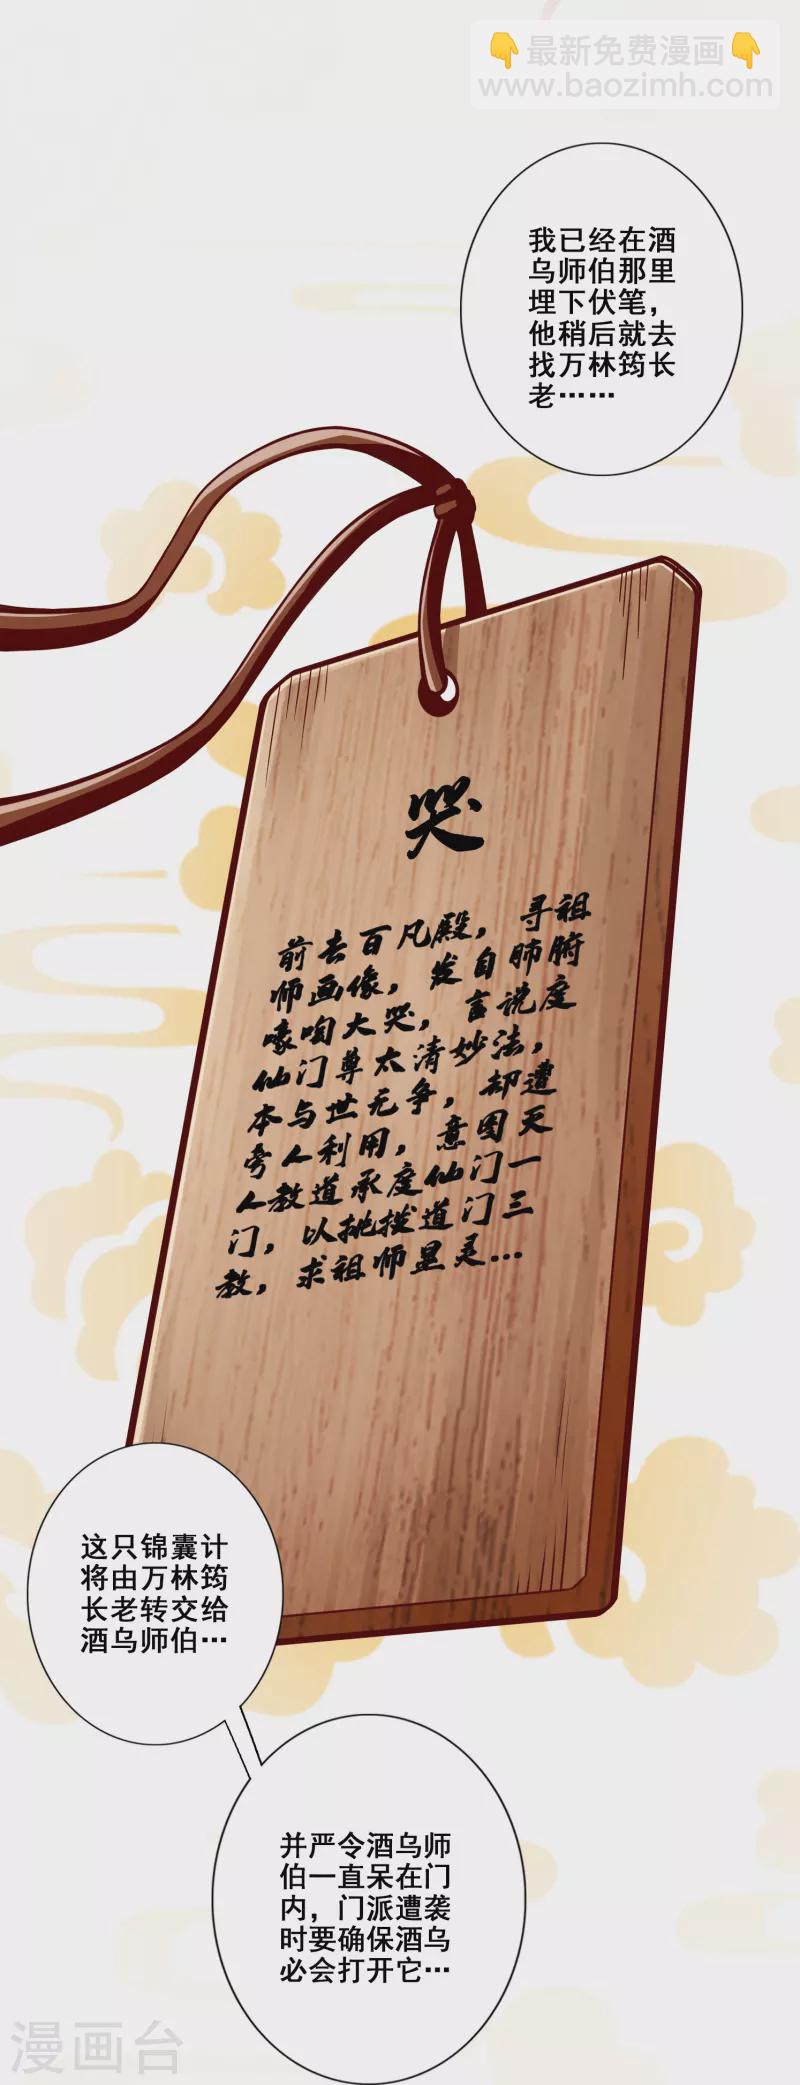 👇最新免费漫画👇
www.baozimh.com
我已经在酒
乌师伯那里
埋下伏笔，
他稍后就去
找万林筠长
老……
哭
前去百凡殿，寻祖
师画像，发自肺腑
嚎啕大哭，言说度
仙门尊太清妙法，
本与世无争，却遭
旁人利用，意图灭
人教道承度仙门一
门，以挑拨道门三
教，求祖师显灵…
这只锦囊计
将由万林筠
长老转交给
酒乌师伯…
并严令酒乌师
伯一直呆在门
内，门派遭袭
时要确保酒乌
必会打开它…
漫画台